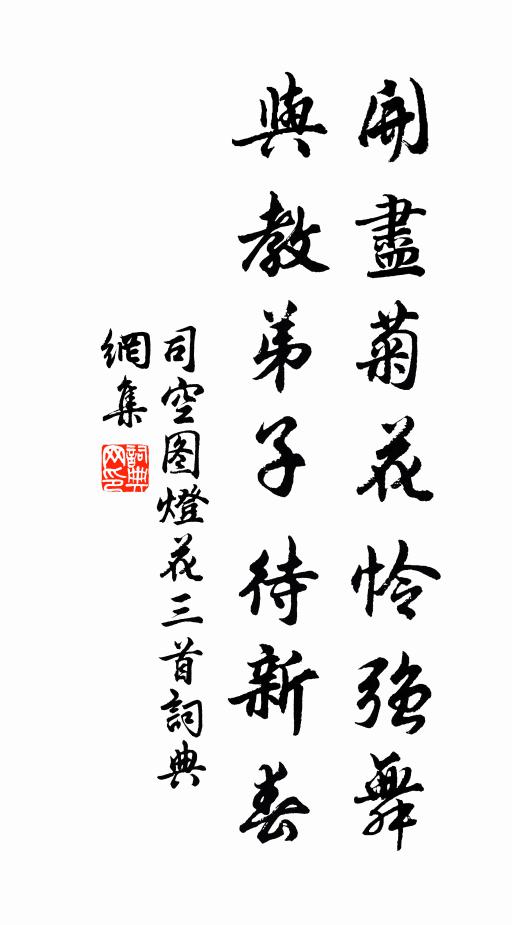 開盡菊花怜强舞
與教弟子待新春
司空图燈花三首詞典
網集
詞典
网印